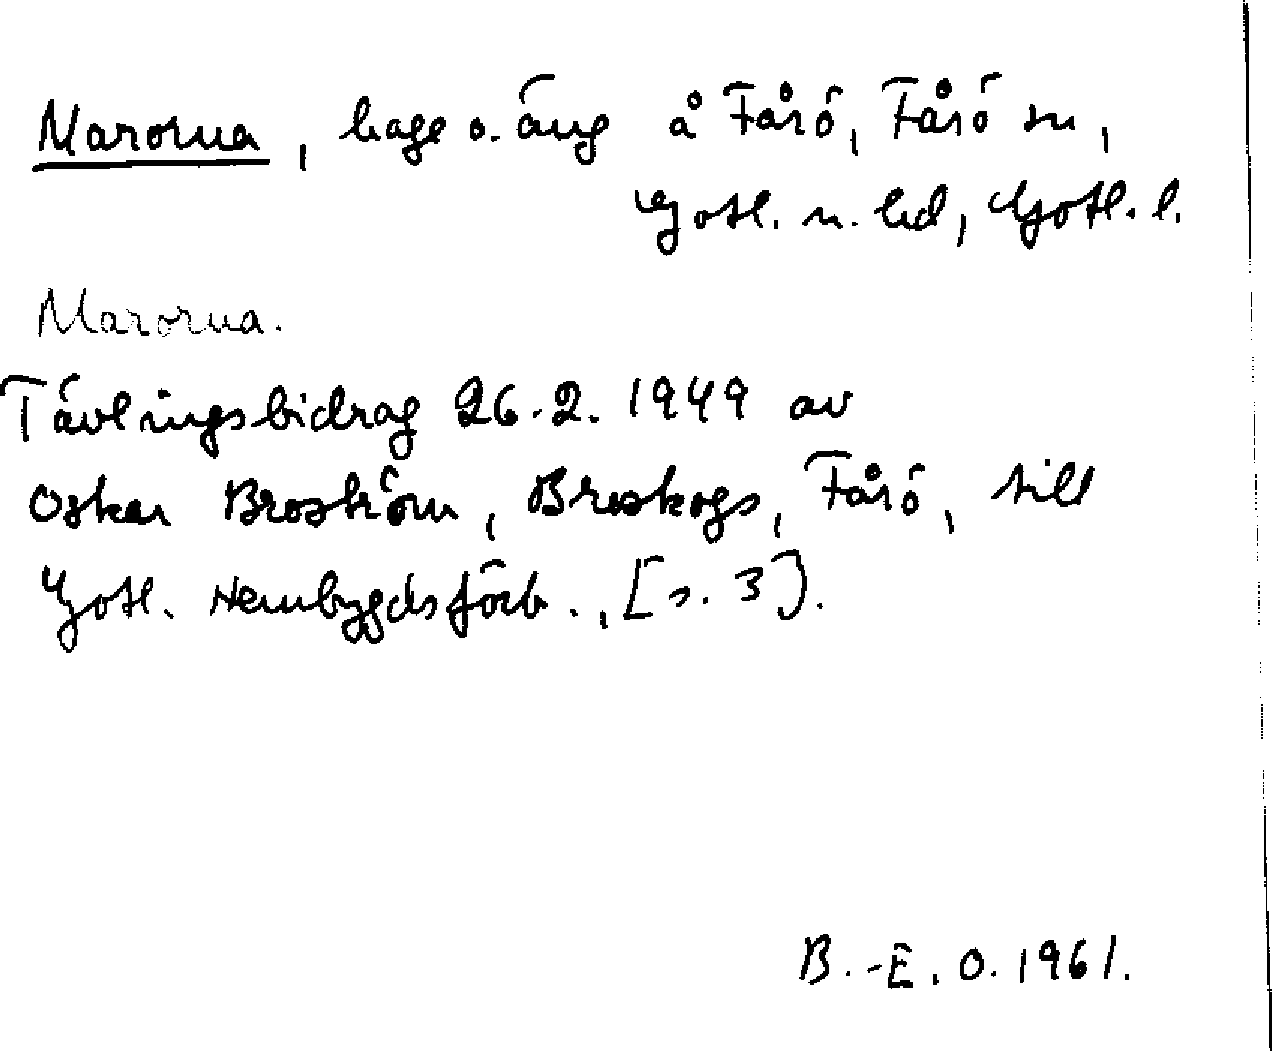 Marorna, hage o. äng å Fårö, Fårö sn,
Gotl. n. hd, Gotl. l.
Marorna.
Tävlingsbidrag 26.2.1949 av
Oskar Broström, Broskogs, Fårö, till
Gotl. Hembygdsförb., [s. 3].
B.-E. O. 1961.